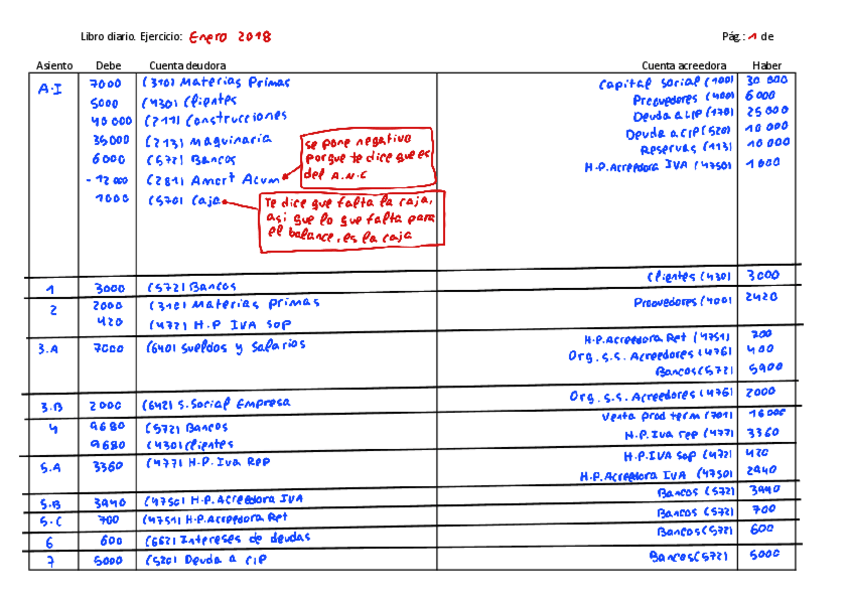 Libro diario. Ejercicio: Enero 2018 Pág.: 1 de
Asiento Debe Cuenta deudora Cuenta acreedora Haber
A.I 7000 (310) Materias Primas Capital Social (100) 30 000
5000 (430) Clientes Proovedores (400) 6 000
40 000 (211) Construcciones Deuda a LIP (170) 25 000
35000 (213) Maquinaria Deuda a CIP (520) 10 000
6000 (572) Bancos Reservas (113) 10 000
-12 000 (281) Amort Acum H.P. Acreedora IVA (4750) 1 000
1000 (570) Caja
se pone negativo
porque te dice que es
del A.N.C
Te dice que falta la caja,
asi que lo que falta para
el balance, es la caja
1 3000 (572) Bancos Clientes (430) 3000
2 2000 (310) Materias primas Proovedores (400) 2420
420 (472) H.P IVA Sop
3.A 7000 (640) Sueldos y Salarios H.P. Acreedora Ret (4751) 700
Org. S.S. Acreedores (476) 400
Bancos (572) 5900
3.B 2000 (642) S. Social Empresa Org. S.S. Acreedores (476) 2000
4 9680 (572) Bancos Venta prod term (701) 16000
9680 (430) Clientes H.P. Iva rep (477) 3360
5.A 3360 (477) H.P. Iva Rep H.P. IVA Sop (472) 420
H.P. Acreedora IVA (4750) 2940
5.B 3940 (4750) H.P. Acreedora IVA Bancos (572) 3940
5.C 700 (4751) H.P. Acreedora Ret Bancos (572) 700
6 600 (662) Intereses de deudas Bancos (572) 600
7 5000 (520) Deuda a CIP Bancos (572) 5000